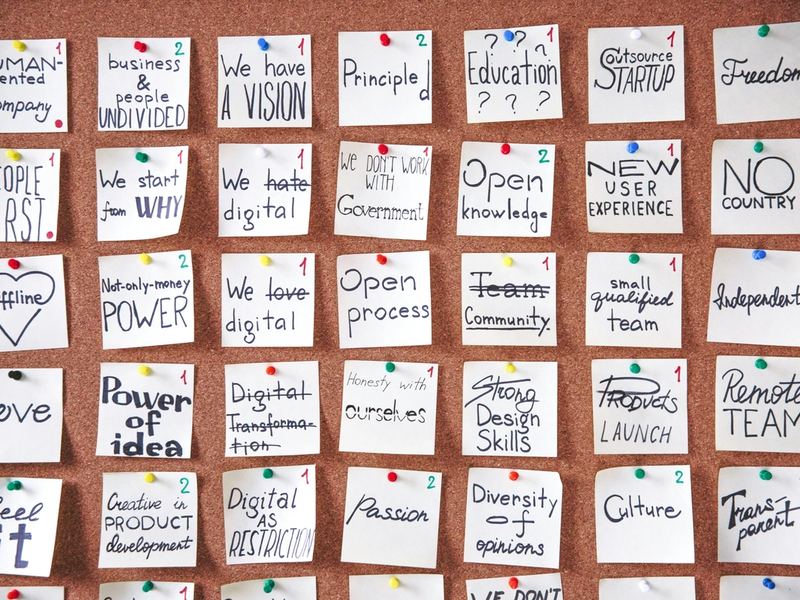 ented
ompany
1
business
&
people
UNDIVIDED
2
We have
A VISION
1
Principled
2
? ? ?
Education
? ? ?
1
Outsource
STARTUP
1
Freedom
RST.
1
We start
from WHY
1
We hate
digital
1
We DON'T WORK
WITH
Government
1
Open
knowledge
2
NEW
USER
EXPERIENCE
1
NO
COUNTRY
ffline
Not-only-money
POWER
2
We love
digital
1
Open
process
Team
Community
1
small
qualified
team
1
Independent
ove
Power
of
idea
1
Digital
Transforma-
tion
Honesty with
ourselves
1
Strong
Design
Skills
Products
LAUNCH
1
Remote
TEAM
eel
it
Creative in
PRODUCT
development
2
Digital
AS
RESTRICTION
1
Passion
2
Diversity
of
opinions
Culture
2
Trans-
parent
1
WE DON'T